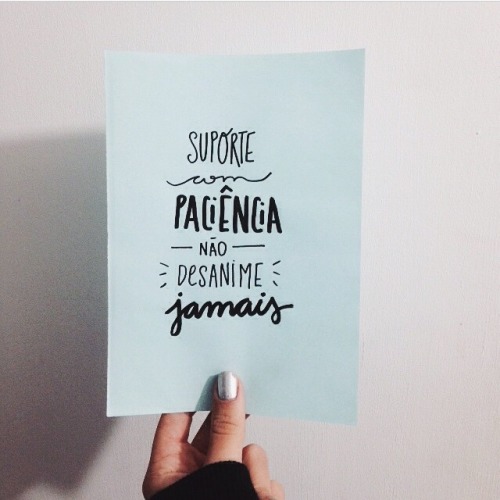 SUPÓRTE
com
PACIÊNCIA
NÃO
DESANIME
jamais